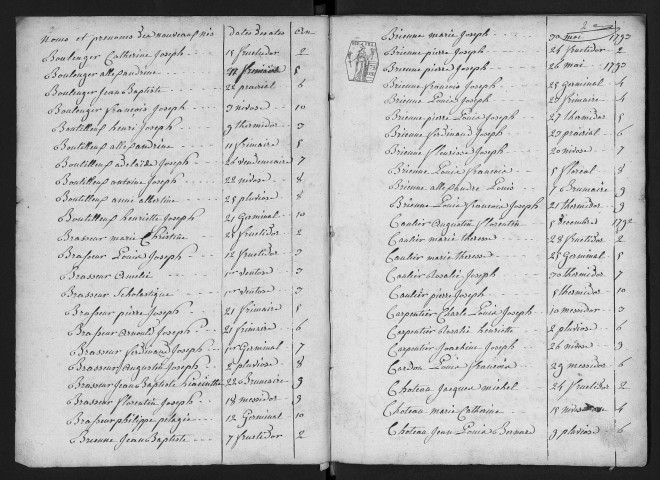 Noms et prenoms des nouveaux nés Dates des actes ans
Boulenger Catherine Joseph 15 fructidor 2
Boulenger allexandrine 22 frimaire 5
Boulenger Jean Baptiste 22 prairial 6
Boulenger francois Joseph 3 nivose 10
Boutilleux henri Joseph 9 thermidor 3
Boutilleux allexandrine 11 frimaire 5
Boutilleux adelaïde Joseph 26 vendemiaire 7
Boutilleux antoine Joseph 22 nivose 8
Boutilleux anne albertine 25 pluviose 8
Boutilleux henriette Joseph 21 Germinal 10
Brasseur marie Christine 25 fructidor 2
Brasseur Louis Joseph 12 fructidor 3
Brasseur Amélie 1er ventose 3
Brasseur Scholastique 1er ventose 3
Brasseur pierre Joseph 21 frimaire 5
Brasseur Arnould Joseph 21 frimaire 6
Brasseur ferdinand Joseph 1er Germinal 7
Brasseur Augustin Joseph 2 pluviose 8
Brasseur Jean Baptiste hiacinthe 22 Brumaire 9
Brasseur florentin Joseph 18 messidor 9
Brasseur philippe pelagie 12 Germinal 10
Brienne Jean Baptiste 7 fructidor 2
2e
Brienne marie Joseph 30 mai 1793
Brienne pierre Joseph 24 fructidor 2
Brienne pierre Joseph 26 mai 1793
Brienne francois Joseph 25 Germinal 4
Brienne Louis Joseph 23 frimaire 4
Brienne pierre Louis Joseph 27 thermidor 5
Brienne ferdinand Joseph 23 prairial 6
Brienne fleurisse Joseph 20 nivose 7
Brienne Louis francois 5 floreal 8
Brienne allexandre Louis 7 Brumaire 9
Brienne Louis francois Joseph 21 thermidor 9
Caulier Augustin florentin 5 Decembre 1792
Caulier marie therese 28 fructidor 2
Caulier marie therese 25 Germinal 5
Caulier Rosalie Joseph 30 thermidor 7
Caulier pierre Joseph 5 thermidor 10
Carpentier Charle Louis Joseph 10 messidor 3
Carpentier Rosalie henriette 2 pluviose 6
Carpentier Joachime Joseph 26 nivose 9
Cardon Louis francois 29 messidor 6
Choteau Jacques michel 24 fructidor 2
Choteau marie Catherine 15 nivose 4
Choteau Jean Louis Bernard 9 pluviose 6